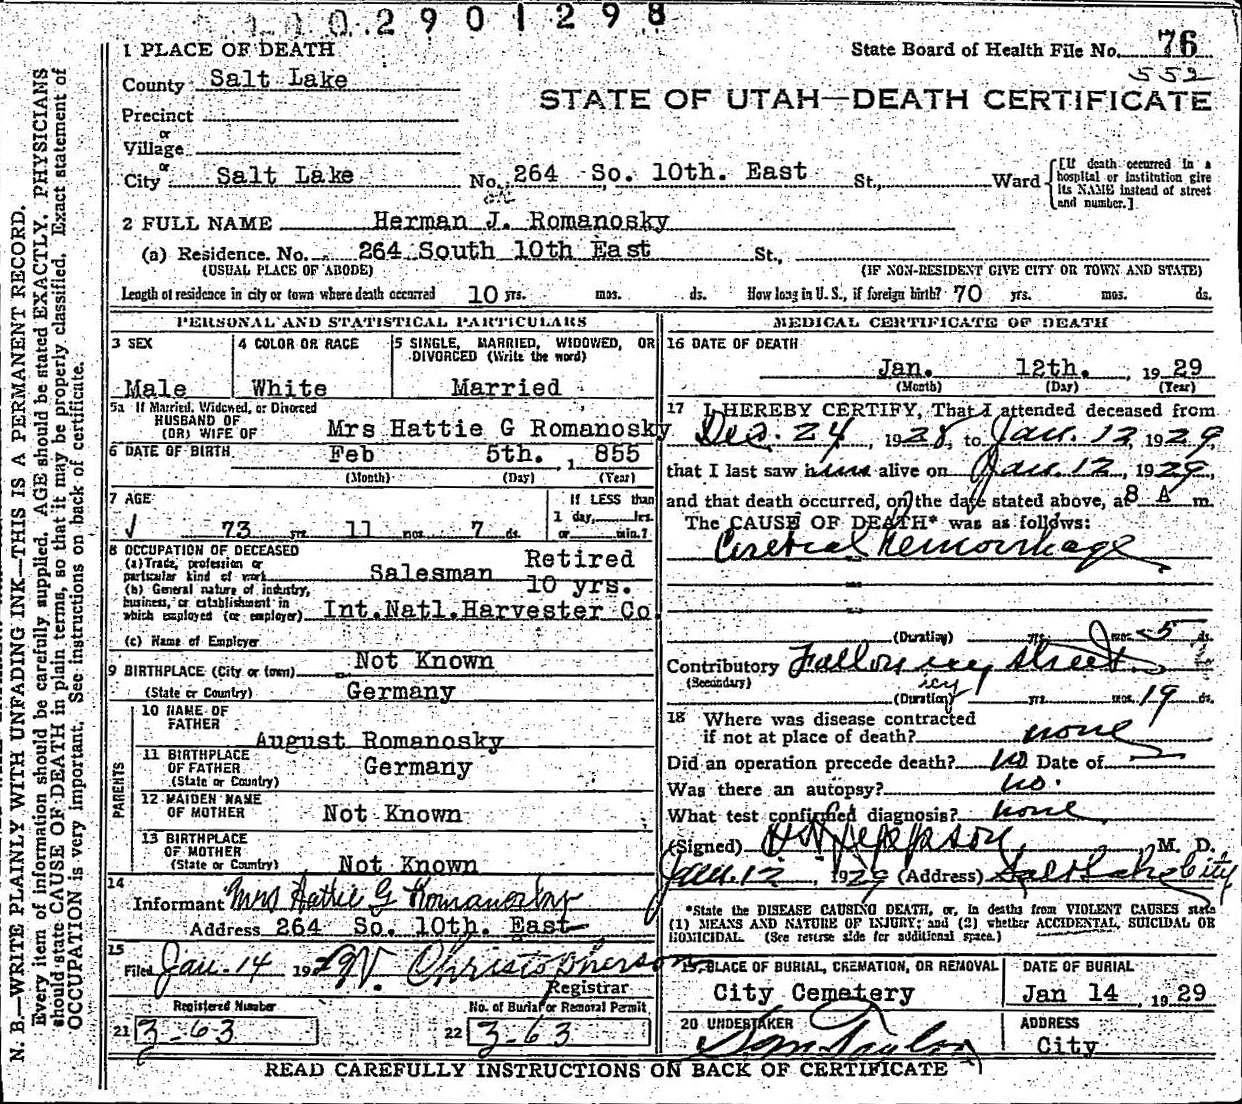 2901298
1 PLACE OF DEATH
State Board of Health File No. 76
552
County Salt Lake
STATE OF UTAH—DEATH CERTIFICATE
Precinct
or
Village
or
City Salt Lake No. 264 So. 10th. East St., Ward
[If death occurred in a hospital or institution give its NAME instead of street and number.]
2 FULL NAME Herman J. Romanosky
(a) Residence. No. 264 South 10th East St.,
(USUAL PLACE OF ABODE) (IF NON-RESIDENT GIVE CITY OR TOWN AND STATE)
Length of residence in city or town where death occurred 10 yrs. mos. ds. How long in U. S., if foreign birth? 70 yrs. mos. ds.
PERSONAL AND STATISTICAL PARTICULARS
3 SEX 4 COLOR OR RACE 5 SINGLE, MARRIED, WIDOWED, OR
DIVORCED (Write the word)
Male White Married
5a If Married, Widowed, or Divorced
HUSBAND OF
(OR) WIFE OF Mrs Hattie G Romanosky
6 DATE OF BIRTH Feb 5th. , 1 855
(Month) (Day) (Year)
7 AGE If LESS than
1 day, hrs.
73 yrs. 11 mos. 7 ds. or min.?
8 OCCUPATION OF DECEASED
(a) Trade, profession or
particular kind of work Salesman Retired
(b) General nature of industry, 10 yrs.
business, or establishment in
which employed (or employer) Int.Natl.Harvester Co.
(c) Name of Employer
9 BIRTHPLACE (City or town) Not Known
(State or Country) Germany
PARENTS
10 NAME OF
FATHER August Romanosky
11 BIRTHPLACE
OF FATHER Germany
(State or Country)
12 MAIDEN NAME
OF MOTHER Not Known
13 BIRTHPLACE
OF MOTHER
(State or Country) Not Known
14
Informant Mrs Hattie G Romanosky
Address 264 So. 10th. East
15
Filed Jan. 14 1929 Christopherson
Registrar
Registered Number No. of Burial or Removal Permit
21 3-63 22 3-63
MEDICAL CERTIFICATE OF DEATH
16 DATE OF DEATH
Jan. 12th. , 19 29
(Month) (Day) (Year)
17 I HEREBY CERTIFY, That I attended deceased from
Dec. 24 , 1928, to Jan. 12 1929,
that I last saw him alive on Jan 12 , 1929,
and that death occurred, on the date stated above, at 8 A m.
The CAUSE OF DEATH* was as follows:
Cerebral hemorrhage
(Duration) yrs. mos. 5 ds.
Contributory Fall on icy street
(Secondary) icy
(Duration) yrs. mos. 19 ds.
18 Where was disease contracted
if not at place of death? none
Did an operation precede death? no Date of
Was there an autopsy? no.
What test confirmed diagnosis? none
(Signed) Jeppson , M. D.
Jan. 12 , 1929 (Address) Salt Lake City
*State the DISEASE CAUSING DEATH, or, in deaths from VIOLENT CAUSES state
(1) MEANS AND NATURE OF INJURY; and (2) whether ACCIDENTAL, SUICIDAL OR
HOMICIDAL. (See reverse side for additional space.)
19. PLACE OF BURIAL, CREMATION, OR REMOVAL DATE OF BURIAL
City Cemetery Jan 14 , 19 29
20 UNDERTAKER ADDRESS
Taylor City
READ CAREFULLY INSTRUCTIONS ON BACK OF CERTIFICATE
N. B.—WRITE PLAINLY WITH UNFADING INK—THIS IS A PERMANENT RECORD.
Every item of information should be carefully supplied. AGE should be stated EXACTLY. PHYSICIANS
should state CAUSE OF DEATH in plain terms, so that it may be properly classified. Exact statement of
OCCUPATION is very important. See instructions on back of certificate.